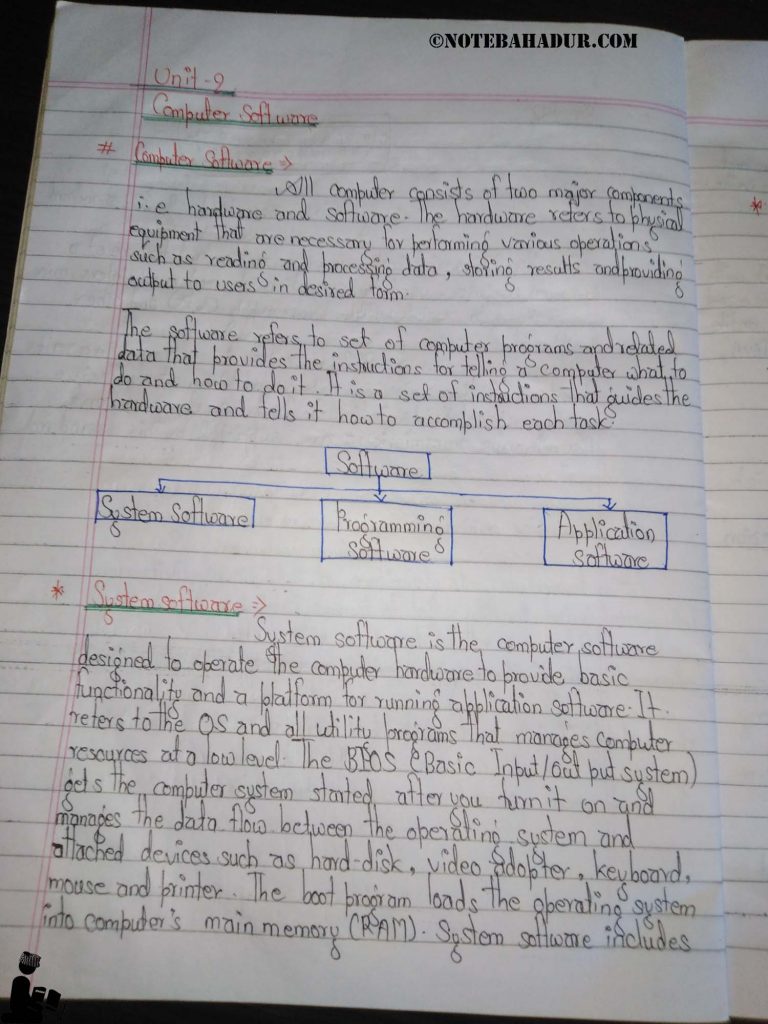 ©NOTEBAHADUR.COM
Unit-2
Computer Software
# Computer Software =>
All computer consists of two major components
i.e hardware and software. The hardware refers to physical
equipment that are necessary for performing various operations
such as reading and processing data, storing results and providing
output to users in desired form.
The software refers to set of computer programs and related
data that provides the instructions for telling a computer what to
do and how to do it. It is a set of instructions that guides the
hardware and tells it how to accomplish each task.
Software
System Software
Programming
Software
Application
Software
* System software =>
System software is the computer software
designed to operate the computer hardware to provide basic
functionality and a platform for running application software. It
refers to the OS and all utility programs that manages computer
resources at a low level. The BIOS (Basic Input/Out put system)
gets the computer system started after you turn it on and
manages the data flow between the operating system and
attached devices such as hard-disk, video adopter, keyboard,
mouse and printer. The boot program loads the operating system
into computer's main memory (RAM). System software includes
*